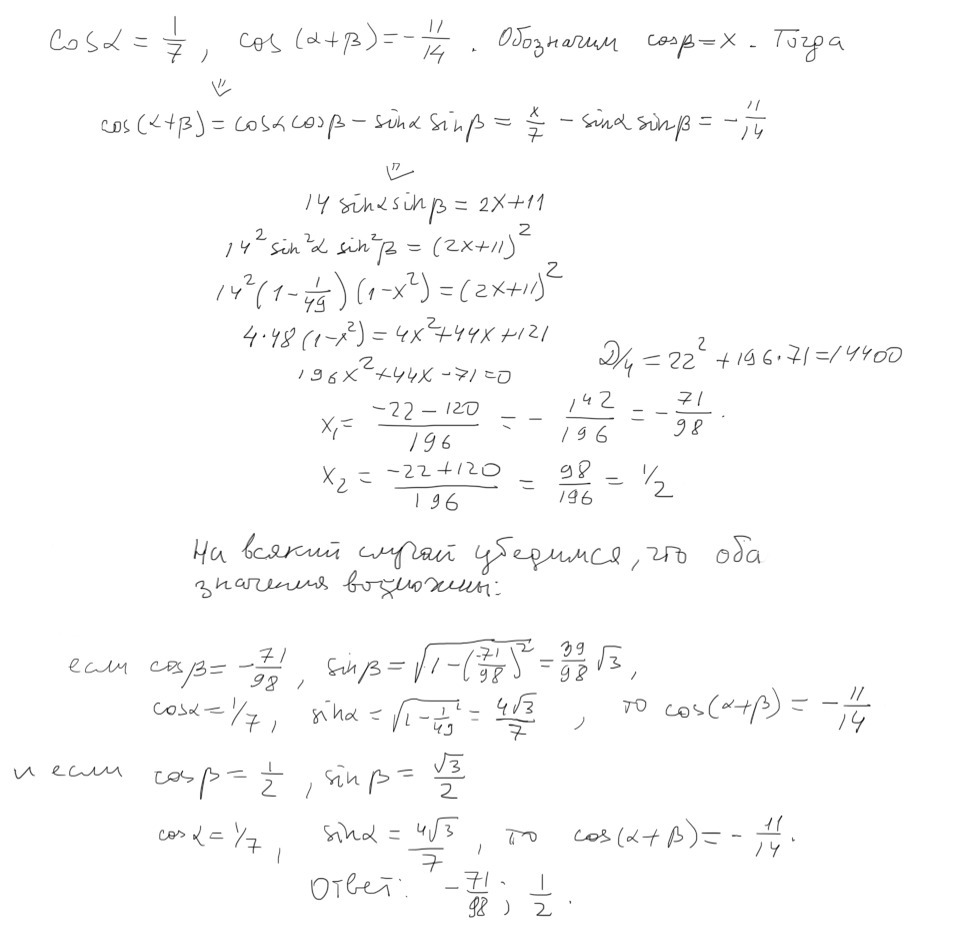 cosα = 1/7, cos(α+β) = -11/14. Обозначим cosβ = x. Тогда
⇓
cos(α+β) = cosα cosβ - sinα sinβ = x/7 - sinα sinβ = -11/14
⇓
14 sinα sinβ = 2x+11
14² sin²α sin²β = (2x+11)²
14²(1 - 1/49)(1-x²) = (2x+11)²
4·48(1-x²) = 4x²+44x+121
196x²+44x-71=0 D/4 = 22² + 196·71 = 14400
x₁ = (-22-120)/196 = -142/196 = -71/98.
x₂ = (-22+120)/196 = 98/196 = 1/2
На всякий случай убедимся, что оба
значения возможны:
если cosβ = -71/98, sinβ = √(1-(-71/98)²) = 39/98 √3,
cosα = 1/7, sinα = √(1-1/49) = 4√3/7, то cos(α+β) = -11/14
и если cosβ = 1/2, sinβ = √3/2
cosα = 1/7, sinα = 4√3/7, то cos(α+β) = -11/14.
Ответ: -71/98; 1/2.